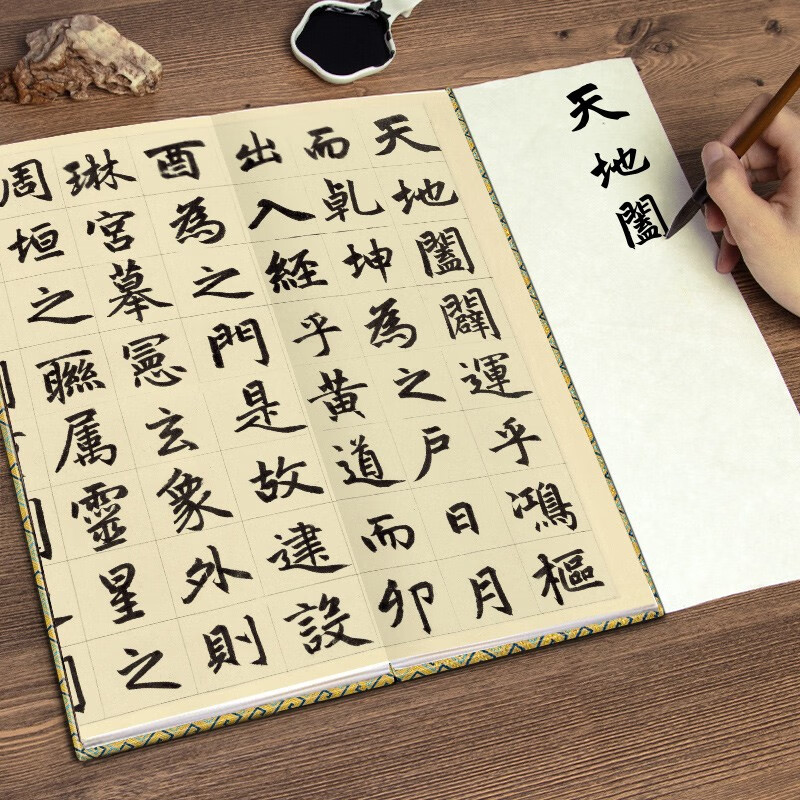 天地闔
天地闔闢運乎鴻樞
而乾坤為之戶日月
出入經乎黃道而卯
酉為之門是故建設
琳宮摹憲玄象外則
周垣之聯属靈星之